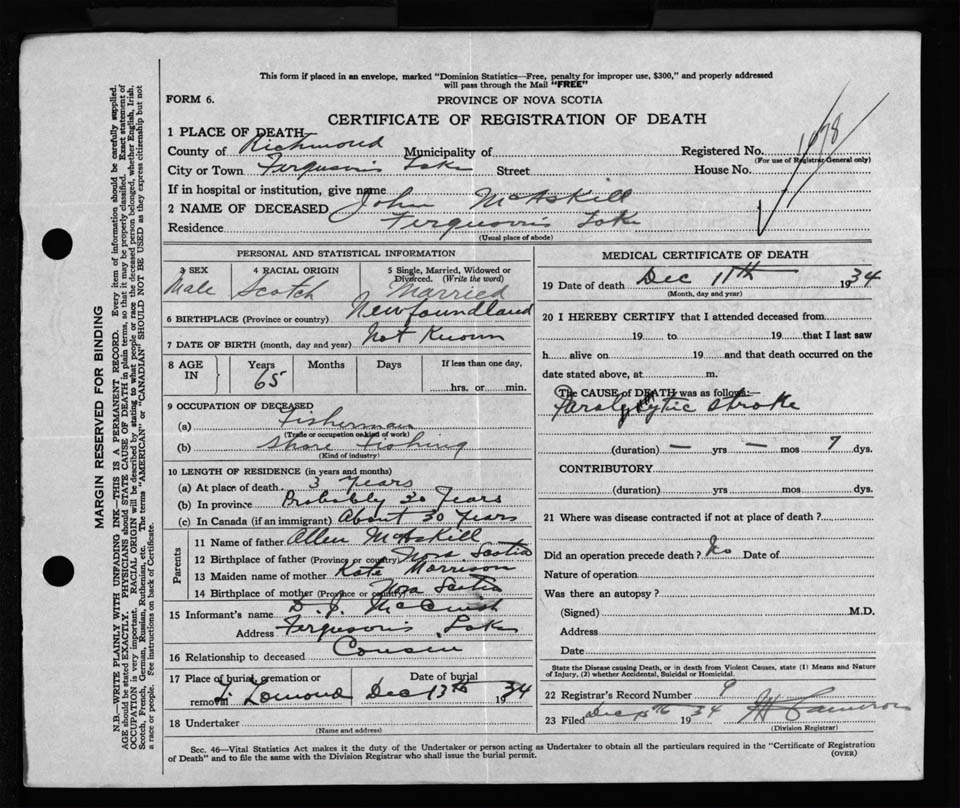 This form if placed in an envelope, marked "Dominion Statistics—Free, penalty for improper use, $300," and properly addressed
will pass through the Mail "FREE"
FORM 6.
PROVINCE OF NOVA SCOTIA
CERTIFICATE OF REGISTRATION OF DEATH
1 PLACE OF DEATH
County of Richmond Municipality of Registered No. 1678
(For use of Registrar General only)
City or Town Ferguson's Lake Street House No.
If in hospital or institution, give name
2 NAME OF DECEASED John McAskill
Residence Ferguson's Lake
(Usual place of abode)
PERSONAL AND STATISTICAL INFORMATION
3 SEX 4 RACIAL ORIGIN 5 Single, Married, Widowed or
Divorced. (Write the word)
Male Scotch Married
6 BIRTHPLACE (Province or country) Newfoundland
7 DATE OF BIRTH (month, day and year) Not Known
8 AGE IN Years Months Days If less than one day,
65 hrs. or min.
9 OCCUPATION OF DECEASED
(a) Fisherman
(Trade or occupation or kind of work)
(b) Shore Fishing
(Kind of industry)
10 LENGTH OF RESIDENCE (in years and months)
(a) At place of death 3 Years
(b) In province Probably 30 Years
(c) In Canada (if an immigrant) About 30 Years
Parents
11 Name of father Allen McAskill
12 Birthplace of father (Province or country) Nova Scotia
13 Maiden name of mother Kate Morrison
14 Birthplace of mother (Province or country) Nova Scotia
15 Informant's name D. J. McCuish
Address Ferguson's Lake
16 Relationship to deceased Cousin
17 Place of burial, cremation or Date of burial
removal L. Lomond Dec 13th 1934
18 Undertaker
(Name and address)
MEDICAL CERTIFICATE OF DEATH
19 Date of death Dec 11th 1934
(Month, day and year)
20 I HEREBY CERTIFY that I attended deceased from
19 to 19 that I last saw
h alive on 19 and that death occurred on the
date stated above, at m.
The CAUSE of DEATH was as follows:
Paralytic stroke
(duration) — yrs — mos 7 dys.
CONTRIBUTORY
(duration) yrs. mos. dys.
21 Where was disease contracted if not at place of death ?
Did an operation precede death ? No Date of
Nature of operation
Was there an autopsy ?
(Signed) M.D.
Address
Date
State the Disease causing Death, or in death from Violent Causes, state (1) Means and Nature
of Injury, (2) whether Accidental, Suicidal or Homicidal.
22 Registrar's Record Number 9
23 Filed Dec 1934 Cameron
(Division Registrar)
Sec. 46—Vital Statistics Act makes it the duty of the Undertaker or person acting as Undertaker to obtain all the particulars required in the "Certificate of Registration
of Death" and to file the same with the Division Registrar who shall issue the burial permit. (OVER)
MARGIN RESERVED FOR BINDING
N.B.—WRITE PLAINLY WITH UNFADING INK—THIS IS A PERMANENT RECORD. Every item of information should be carefully supplied.
AGE should be stated EXACTLY. PHYSICIANS should STATE CAUSE OF DEATH in plain terms, so that it may be properly classified. Exact statement of
OCCUPATION is very important. RACIAL ORIGIN will be described by stating to what people or race the deceased person belonged, whether English, Irish,
Scotch, French, German, Russian, Ruthenian, etc. The terms "AMERICAN" or "CANADIAN" SHOULD NOT BE USED as they express citizenship but not
a race or people. See instructions on back of Certificate.